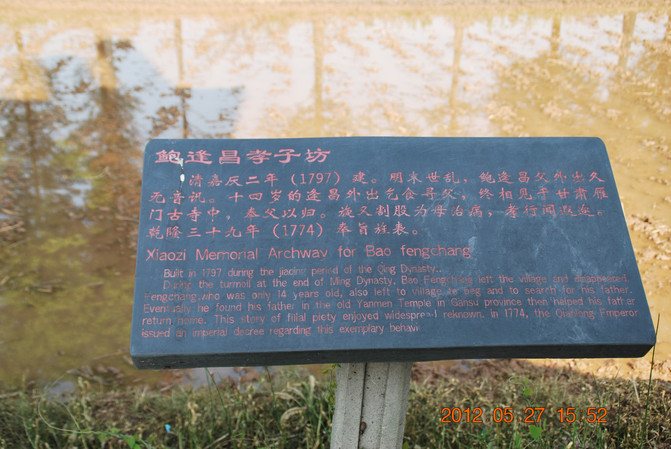 鲍逢昌孝子坊
清嘉庆二年（1797）建。明末世乱，鲍逢昌父外出久
无音讯。十四岁的逢昌外出乞食寻父，终相见于甘肃雁
门古寺中，奉父以归。旋又割股为母治病，孝行闻遐迩。
乾隆三十九年（1774）奉旨旌表。
Xiaozi Memorial Archway for Bao fengchang
Built in 1797 during the jiaqing period of the Qing Dynasty.
During the turmoil at the end of Ming Dynasty, Bao Fengchang left the village and disappeared.
Fengchang,who was only 14 years old, also left to village to beg and to search for his father.
Eventually he found his father in the old Yanmen Temple in Gansu province then helped his father
return home. This story of filial piety enjoyed widespread reknown. In 1774, the Qianlong Emperor
issued an imperial decree regarding this exemplary behavi
2012 05 27 15:52